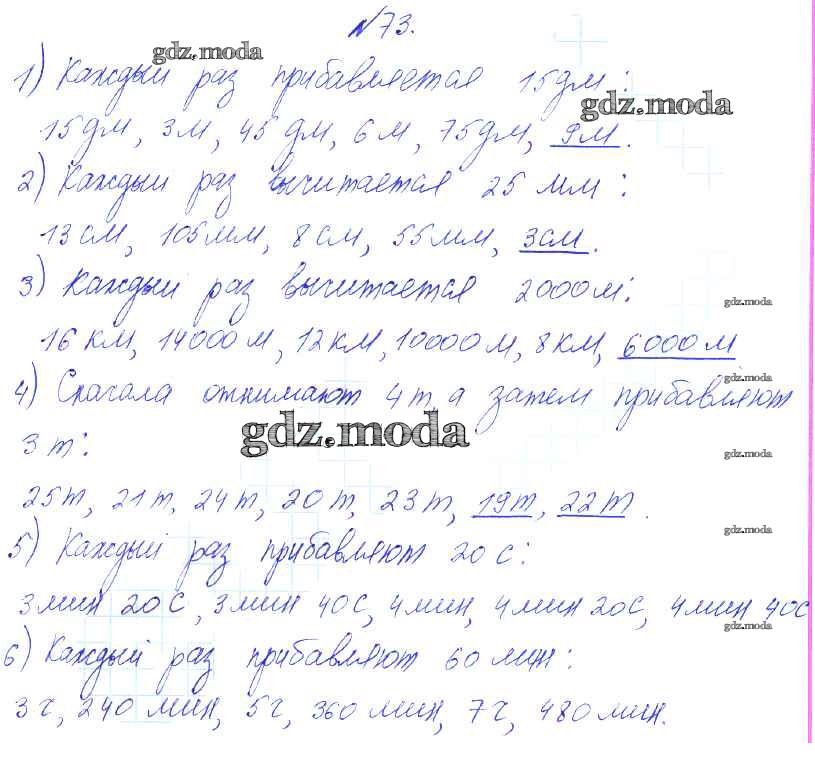 №73.
gdz.moda
1) Каждый раз прибавляется 15дм:
gdz.moda
15дм, 3м, 45дм, 6м, 75дм, 9м.
2) Каждый раз вычитается 25 мм:
13см, 105мм, 8см, 55мм, 3см.
3) Каждый раз вычитается 2000м:
gdz.moda
16 км, 14000м, 12км, 10000м, 8км, 6000м
gdz.moda
4) Сначала отнимают 4т, а затем прибавляют
gdz.moda
3т:
gdz.moda
25т, 21т, 24т, 20т, 23т, 19т, 22т.
gdz.moda
5) Каждый раз прибавляют 20с:
3мин 20с, 3мин 40с, 4мин, 4мин 20с, 4мин 40с
gdz.moda
6) Каждый раз прибавляют 60мин:
3ч, 240мин, 5ч, 360мин, 7ч, 480мин.
gdz.moda